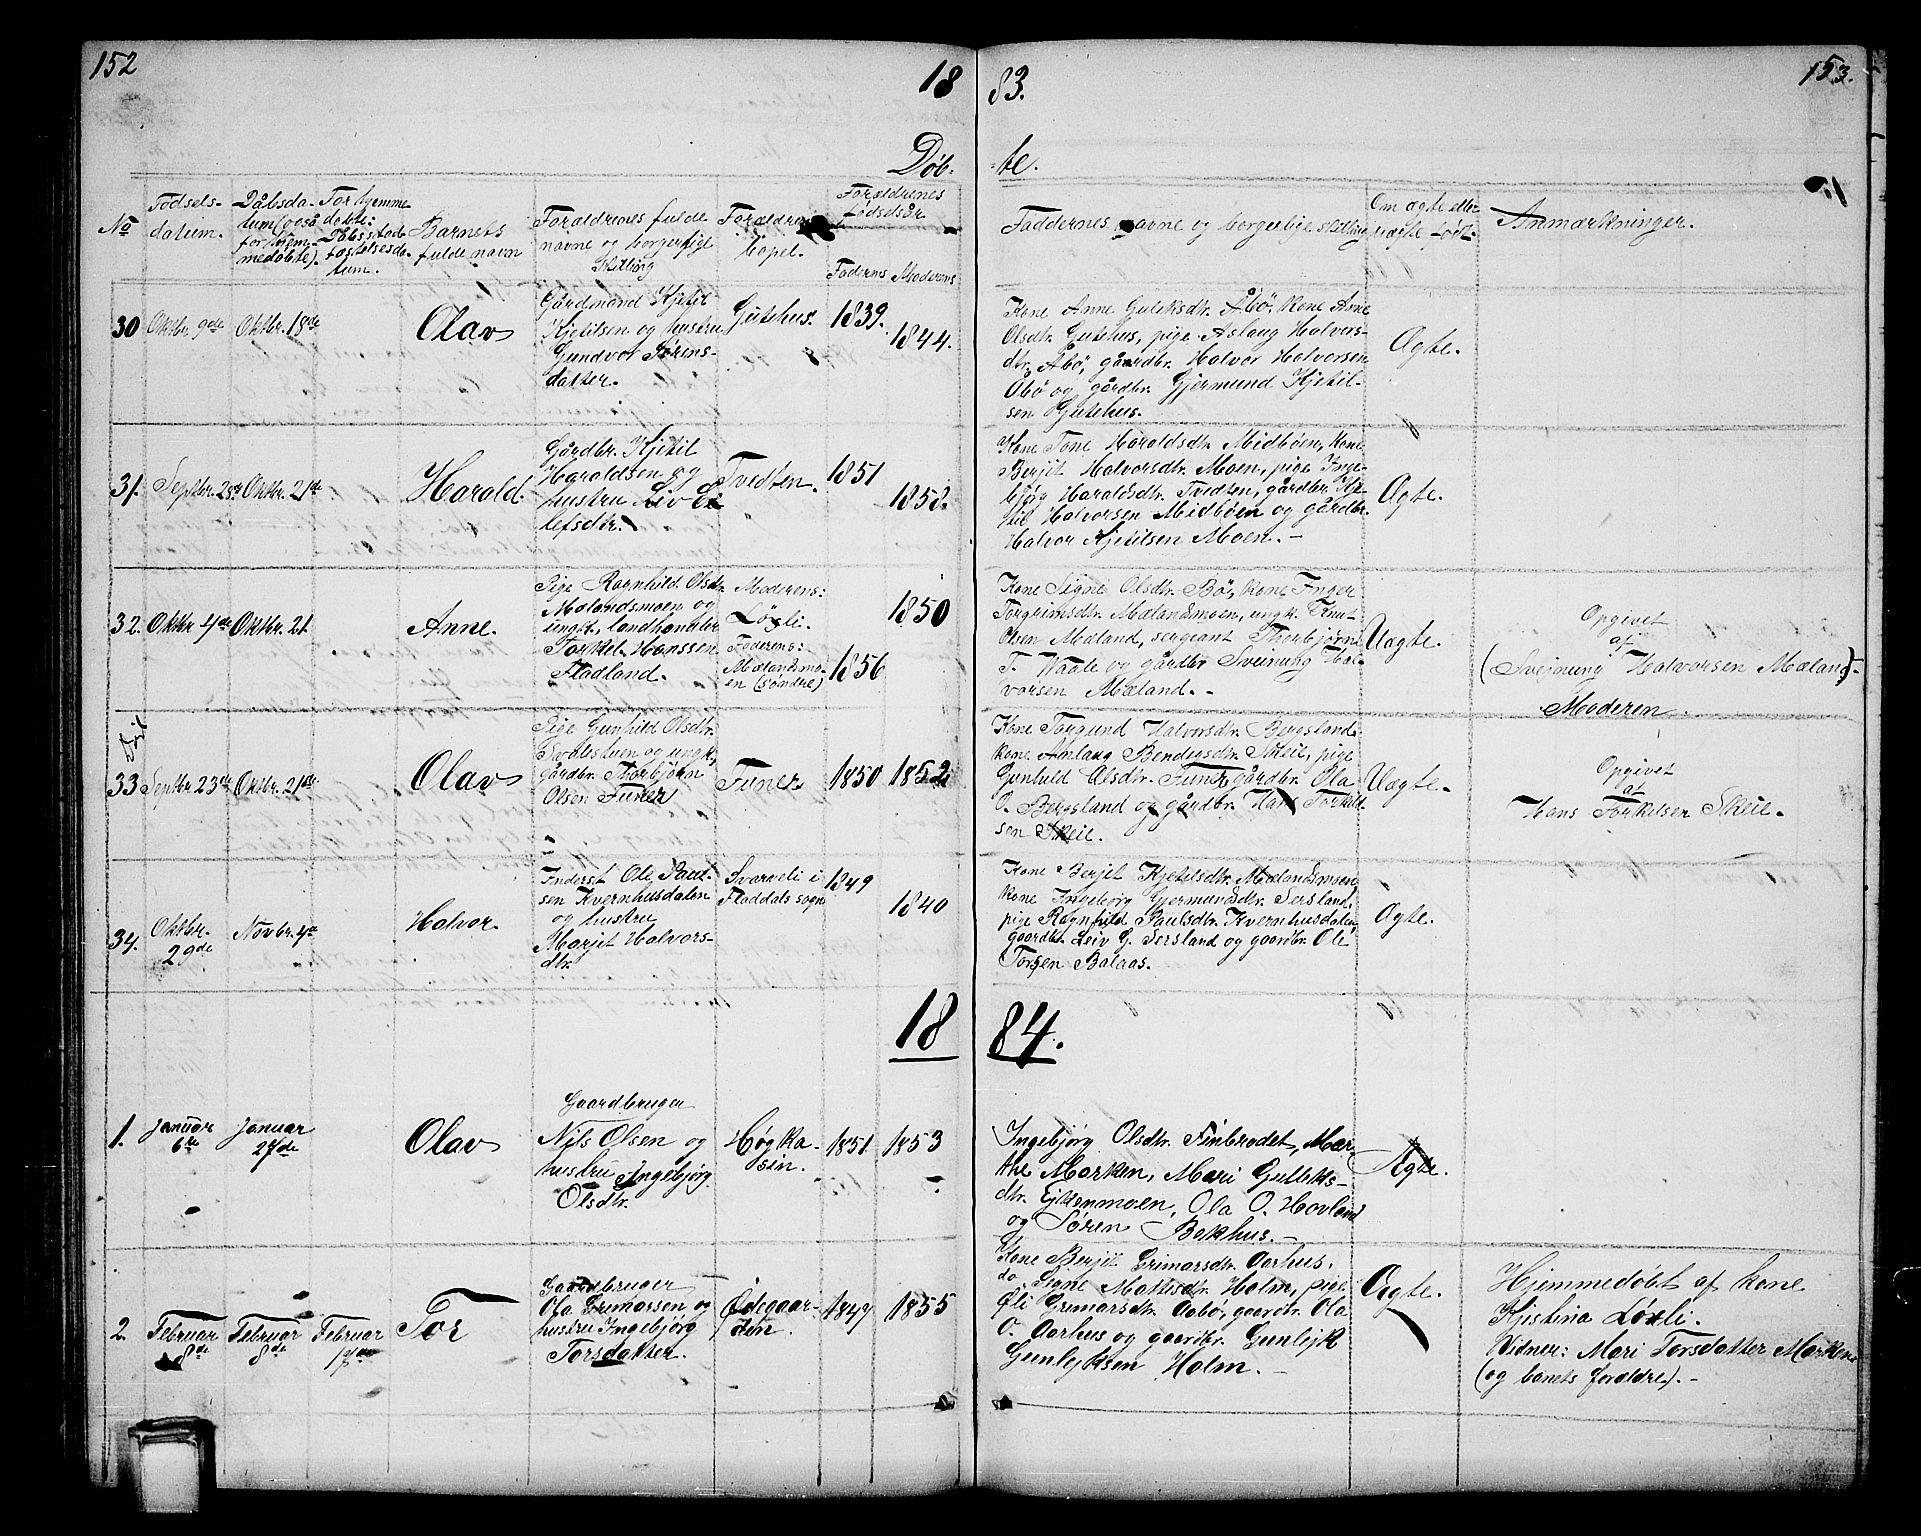 152
18
83.
153.
Døb-
-te.
No
Fødsels-
datum.
Dåbsda-
tum (også
for hjem-
medøbte).
For hjemme
døbte:
Dåbsstad-
fæstelsesda-
tum.
Barnets
fulde navn
Forældrenes fulde
navne og borgerlige
stilling
Forældrenes
bopel.
Forældrenes
fødselsår
Faderns
Moderens
Faddernes navne og borgerlige stilling
Om ægte eller
uægte født
Anmærkninger.
30
Oktbr. 9de
Oktbr. 18de
Olav
Gårdmand Kjetil
Kjetilsen og hustru
Gundvor Sørens-
datter.
Gutehus.
1839.
1844.
Kone Anne Guleksdtr. Åbø, kone Anne
Olsdtr. Gutehus, pige Aslaug Halvors-
dtr. Åbø, gårdbr. Halvor Halvorsen
Åbø og gårdbr. Gjermund Kjetil-
sen Gutehus.
Ægte.
31.
Septbr. 25de
Oktbr. 21de
Harald.
Gårdbr. Kjetil
Haraldsen og
hustru Liv Ei
lefsdtr.
Tvedten.
1851
1858.
Kone Tone Haraldsdtr. Midbøen, kone
Berjit Halvorsdtr. Moen, pige Inge-
bjørg Haraldsdtr. Tvedten, gårdbr. Kje-
til Halvorsen Midbøen og gårdbr.
Halvor Kjetilsen Moen. -
Ægte.
32.
Oktbr 4de
Oktbr. 21.
Anne.
Pige Ragnhild Olsdtr.
Mælandsmoen og
ungk. landhandler
Torkel Hanssen
Fladland.
Moderens:
Løyli.
Faderens:
Mælandsmo-
en (søndre)
1856
1850
Kone Signe Olsdtr. Bø, kone Inger
Torgrimsdtr. Mælandsmoen, ungk. Knut
Olsen Mæland, sergeant Thorbjørn
T. Waale og gårdbr Sveinung Hal-
vorsen Mæland. -
Uægte.
Opgivet
af
(Svejnung Halvorsen Mæland)-
Moderen.
33
Septbr 23de
Oktbr. 21de
Olav
Pige Gunhild Olsdtr.
og ungk.
gårdbr. Thorbjørn
Olsen Funer
Funer
1850
1852
Kone Torgund Halvorsdtr. Bergsland.
kone Anlaug Bendersdtr. Skeie, pige
Gunhild Olsdtr. Funer gårdbr. Ola
O. Bergsland og gårdbr. Hans Torkild
sen Skeie.
Uægte.
Opgivet
af
Hans Torkelsen Skeie.
34.
Oktbr.
29de
Novbr. 4de
Halvor.
Inderst Ole Paul-
sen Kvernhusdalen
og hustru
Marjit Halvors-
dtr.
Svarveli i
Fladdals sogn
1849
1840
Kone Berjit Kjetilsdtr. Mælandsmoen
kone Ingebjørg Gjermundsdr. Sersland,
pige Ragnhild Paulsdtr. Kvernhusdalen,
gaardbr. Leiv G. Sersland og gaardbr. Ole
Torsen Balaas.
Ægte.
18
84.
1.
Januar
6te
Januar
27de
Olav
Gaardbruger
Nils Olsen og
hustru Ingebjørg
Olsdtr.
Høgka-
sin.
1851
1853
Ingebjørg Olsdtr. Finbrodet, Mar-
the Marken, Mari Gulleks-
dtr. Ejkenmoen, Ola O. Hovland
og Søren Bekhus. -
Ægte.
2.
Februar
8de
Februar
8de
Februar
Tor
Gaardbruger
Ola Grimarsen og
hustru Ingebjørg
Torsdatter.
Ødegaar-
den.
1847
1855
Kone Berjit Grimarsdtr. Aarhus,
do Signe Mattisdtr. Holm, pige
Øli Grimarsdtr. Aabø, gaardbr. Ola
O. Aarhus og gaardbr. Gunlejk
Gunlejksen Holm. -
Ægte.
Hjemmedøbt af kone
Kjistina Løyli.
Vidner: Mari Torsdatter Marken
(og banets forældre). -